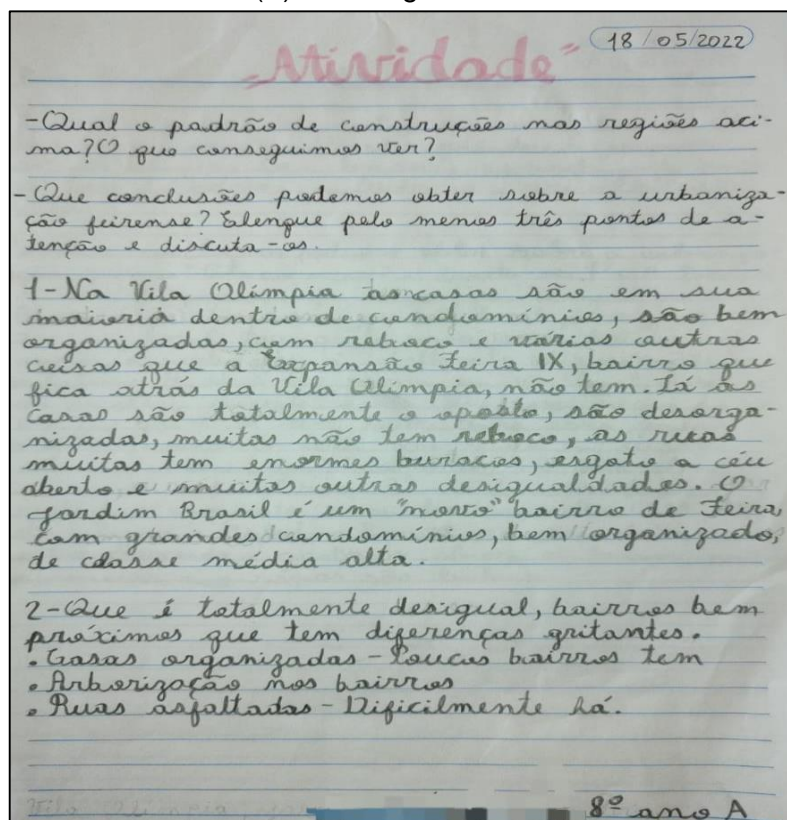 18/05/2022
"Atividade"
-Qual o padrão de construções nas regiões aci-
ma? O que conseguimos ver?
- Que conclusões podemos obter sobre a urbaniza-
ção feirense? Elenque pelo menos três pontos de a-
tenção e discuta-os.
1-Na Vila Olímpia as casas são em sua
maioria dentro de condomínios, são bem
organizadas, com reboco e várias outras
coisas que a Expansão Feira IX, bairro que
fica atrás da Vila Olímpia, não tem. Lá as
casas são totalmente o oposto, são desorga-
nizadas, muitas não tem reboco, as ruas
muitas tem enormes buracos, esgoto a céu
aberto e muitas outras desigualdades. O
Jardim Brasil é um "novo" bairro de Feira,
com grandes condomínios, bem organizado,
de classe média alta.
2-Que é totalmente desigual, bairros bem
próximos que tem diferenças gritantes.
• Casas organizadas - Poucos bairros tem
• Arborização nos bairros
• Ruas asfaltadas - Dificilmente há.
8º ano A